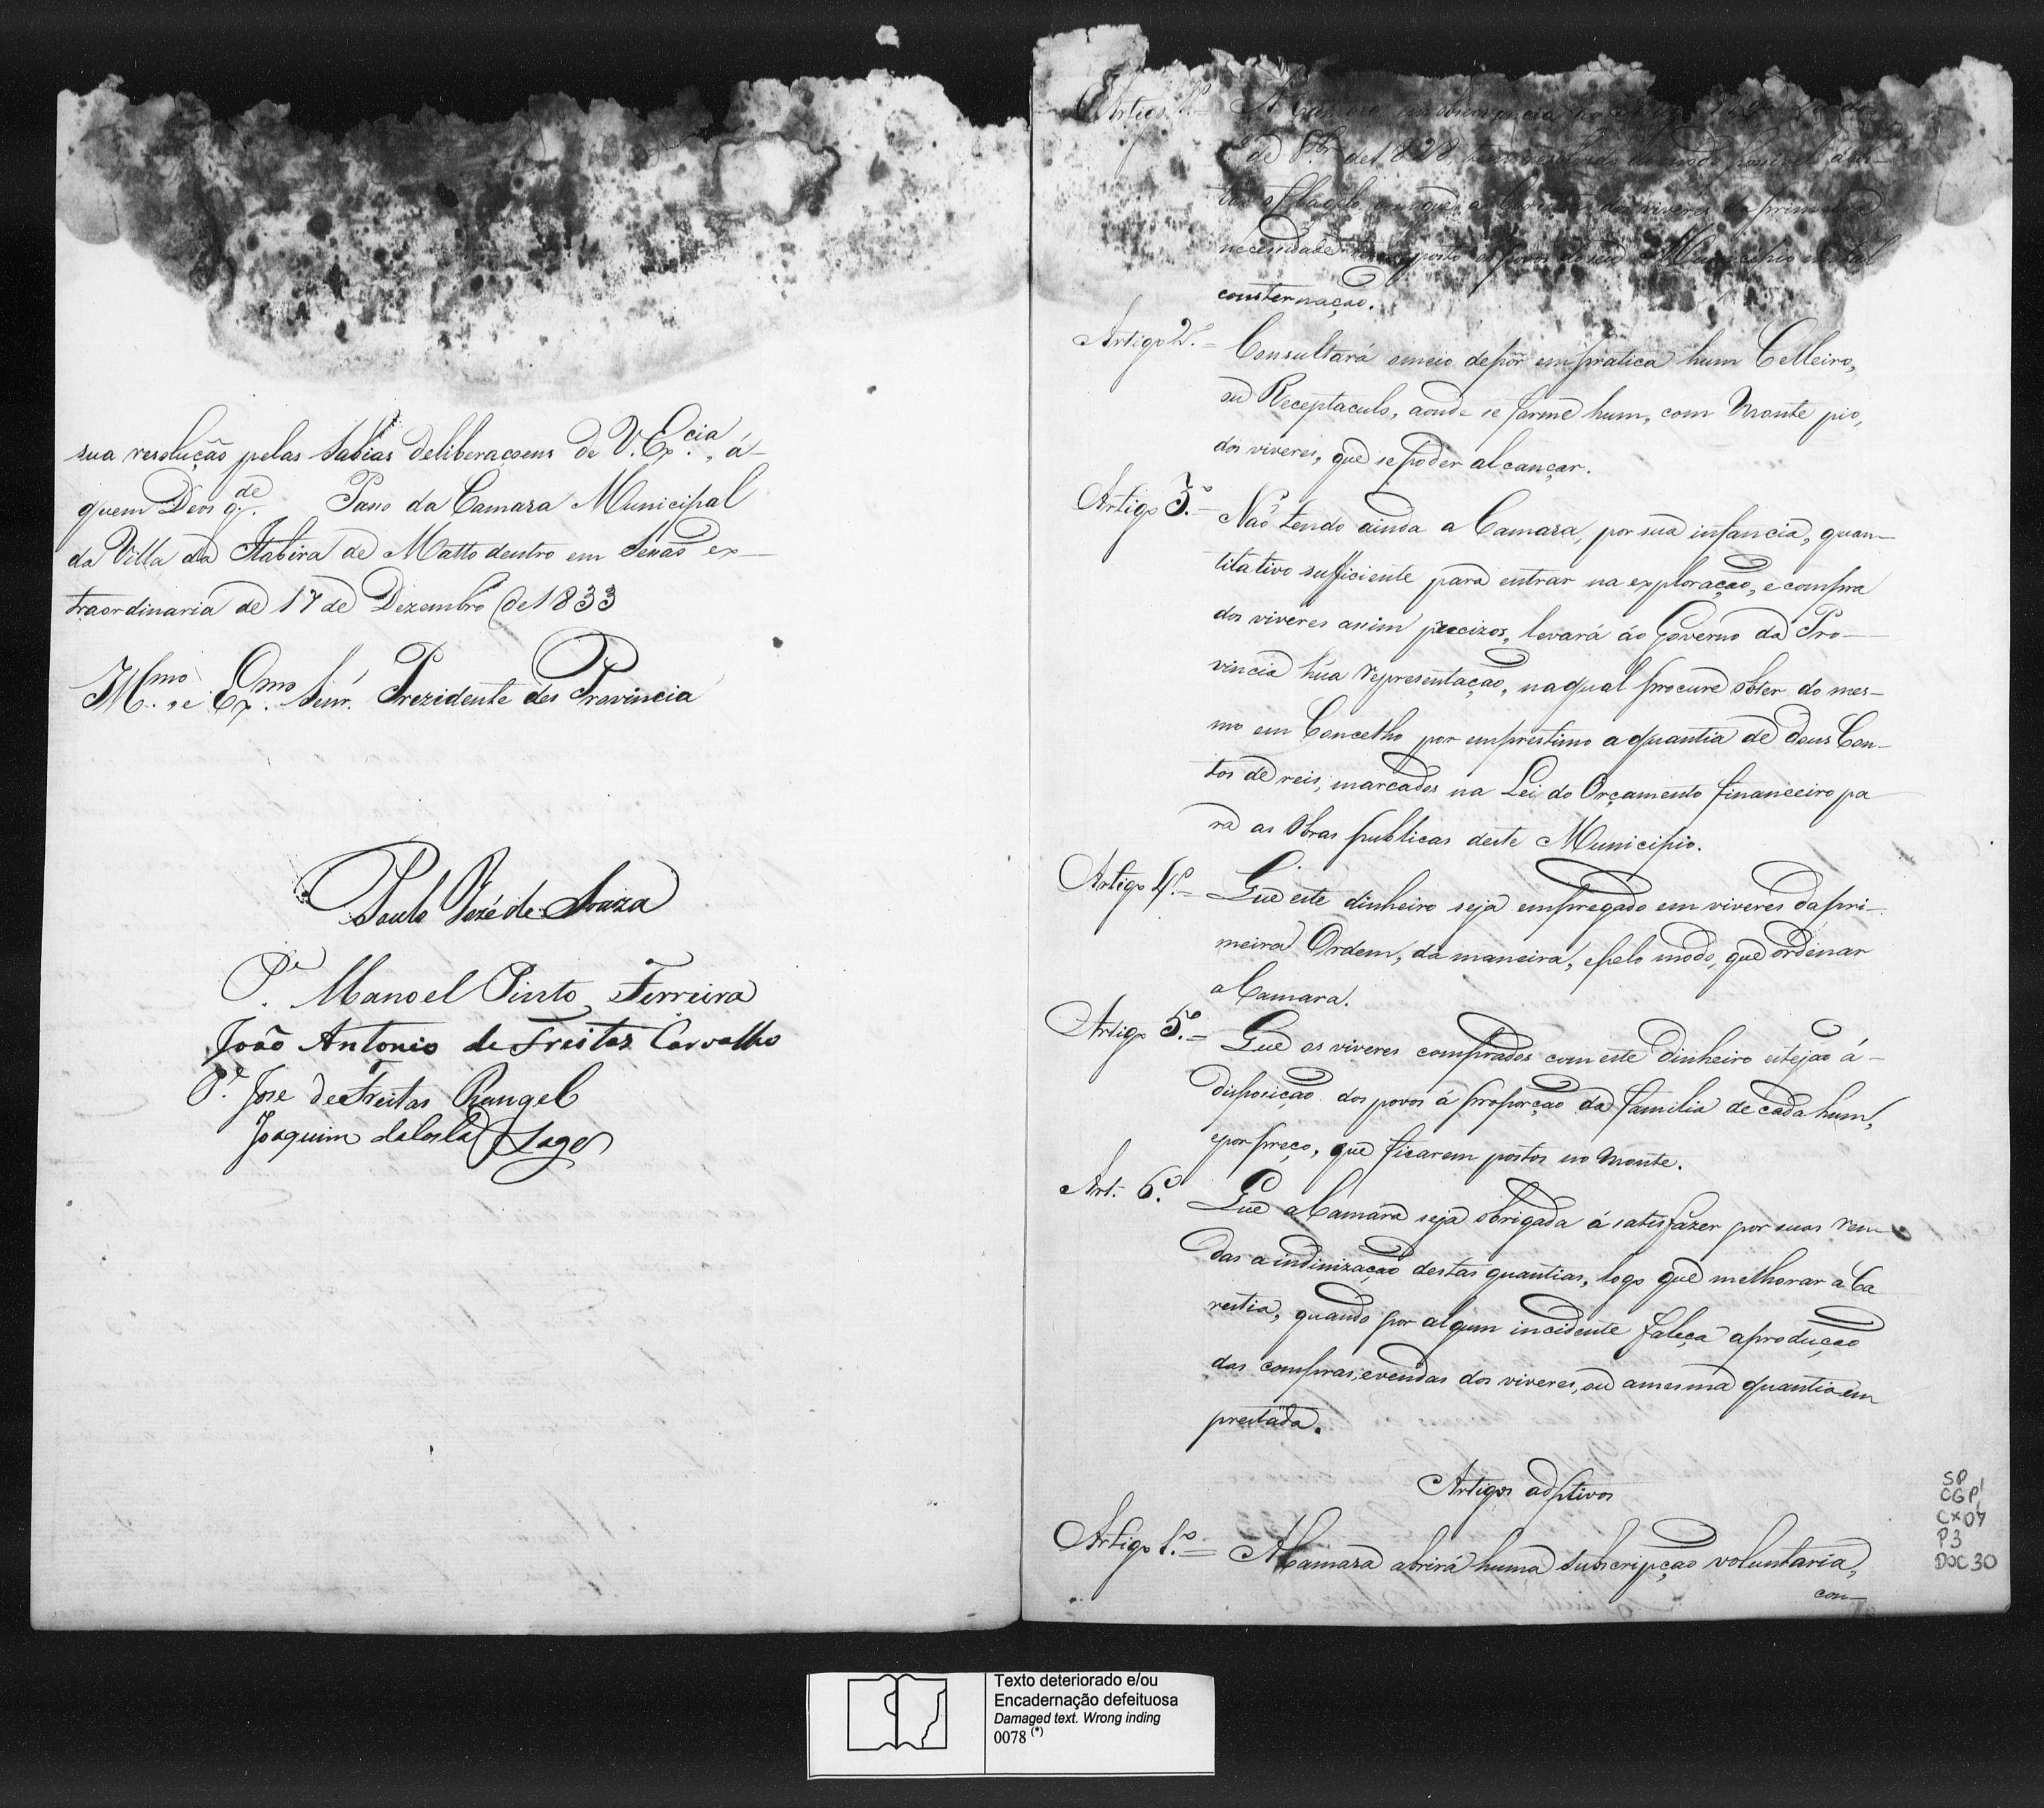 sua resolução pelas sabias deliberaçoens de V. Ex.cia, á-
quem Deos g.de. Paso da Camara Municipal
da Villa da Itabira de Matto dentro em Sesaõ ex-
traordinaria de 17 de Dezembro de 1833
Ill.mo e Ex.mo Senr. Prezidente des Provincia
Paulo Jozé de Souza
P.e Manoel Pinto Ferreira
João Antonio de Freitas Carvalho
P.e Jose de Freitas Rangel
Joaquim da Costa Lage
Artigo 1.º = A Camara em observancia do artigo
de 8.br de 1828,
tar o flagelo, em que a dos viveres da primeira
necessidade tem posto os povos do seo Municipio em tal
consternaçaõ.
Artigo 2.º = Consultará o meio de pôr em pratica hum Celleiro,
ou Receptaculo, aonde se forme hum, com Monte pio,
dos viveres, que se poder alcançar.
Artigo 3.º = Naõ tendo ainda a Camara, por sua infancia, quan-
titativo sufficiente para entrar na exploraçaõ, e compra
dos viveres asim precizos, levará áo Governo da Pro-
vincia hũa Representaçaõ, na qual procure obter do mes-
mo em Concelho por emprestimo a quantia de dous Con-
tos de reis, marcados na Lei do Orçamento financeiro pa
ra as Obras publicas deste Municipio.
Artigo 4.º = Que este dinheiro seja empregado em viveres da pri-
meira Ordem, da maneira, e pelo modo, que ordenar
a Camara.
Artigo 5.º = Que os viveres comprados com este dinheiro estejaõ á-
disposiçaõ dos povos á proporçaõ da familia de cada hum,
e por preço, que ficarem postos no Monte.
Art. 6.º Que a Camara seja obrigada á satisfazer por suas ren
das a indinizaçaõ destas quantias, logo que melhorar a Ca
restia, quando por algum incidente faleça a produçaõ
das compras, e vendas dos viveres, ou a mesma quantia em
prestada.
Artigos adptivos
Artigo 1.º = A Camara abrirá huma subscripçaõ voluntaria,
com-
SP
CGP1
CX07
P3
DOC 30
Texto deteriorado e/ou
Encadernação defeituosa
Damaged text. Wrong inding
0078 (*)